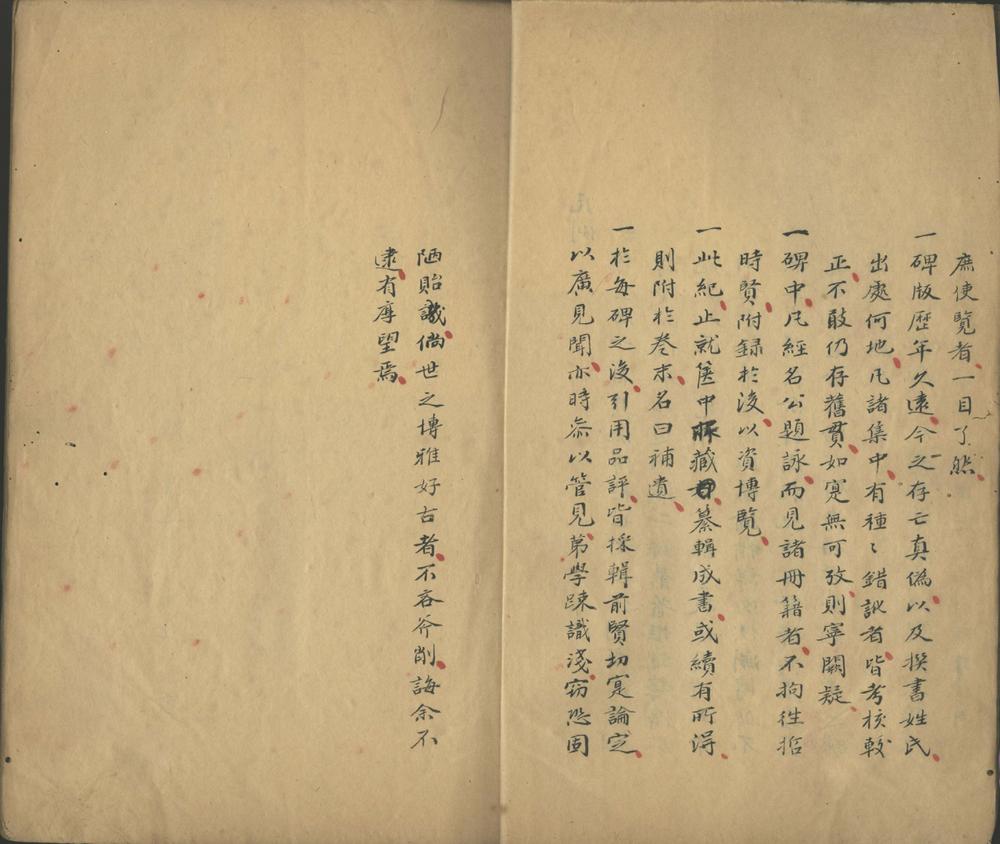 庶使覽者一目了然
一碑版歷年久遠今之存亡真僞以及撰書姓氏
出處何地凡諸集中有種〻錯訛者皆考核較
正不敢仍存舊貫如寔無可攷則寧闕疑
一碑中凡經名公題詠而見諸冊籍者不拘徃哲
時賢附録於後以資博覽
一此紀止就篋中所藏者纂輯成書或續有所得
則附於卷末名曰補遺
一於每碑之後引用品評皆採輯前賢切寔論定
以廣見聞亦時叅以管見苐學踈識淺窃恐固
陋貽譏倘世之博雅好古者不吝斧削誨余不
逮有厚望焉